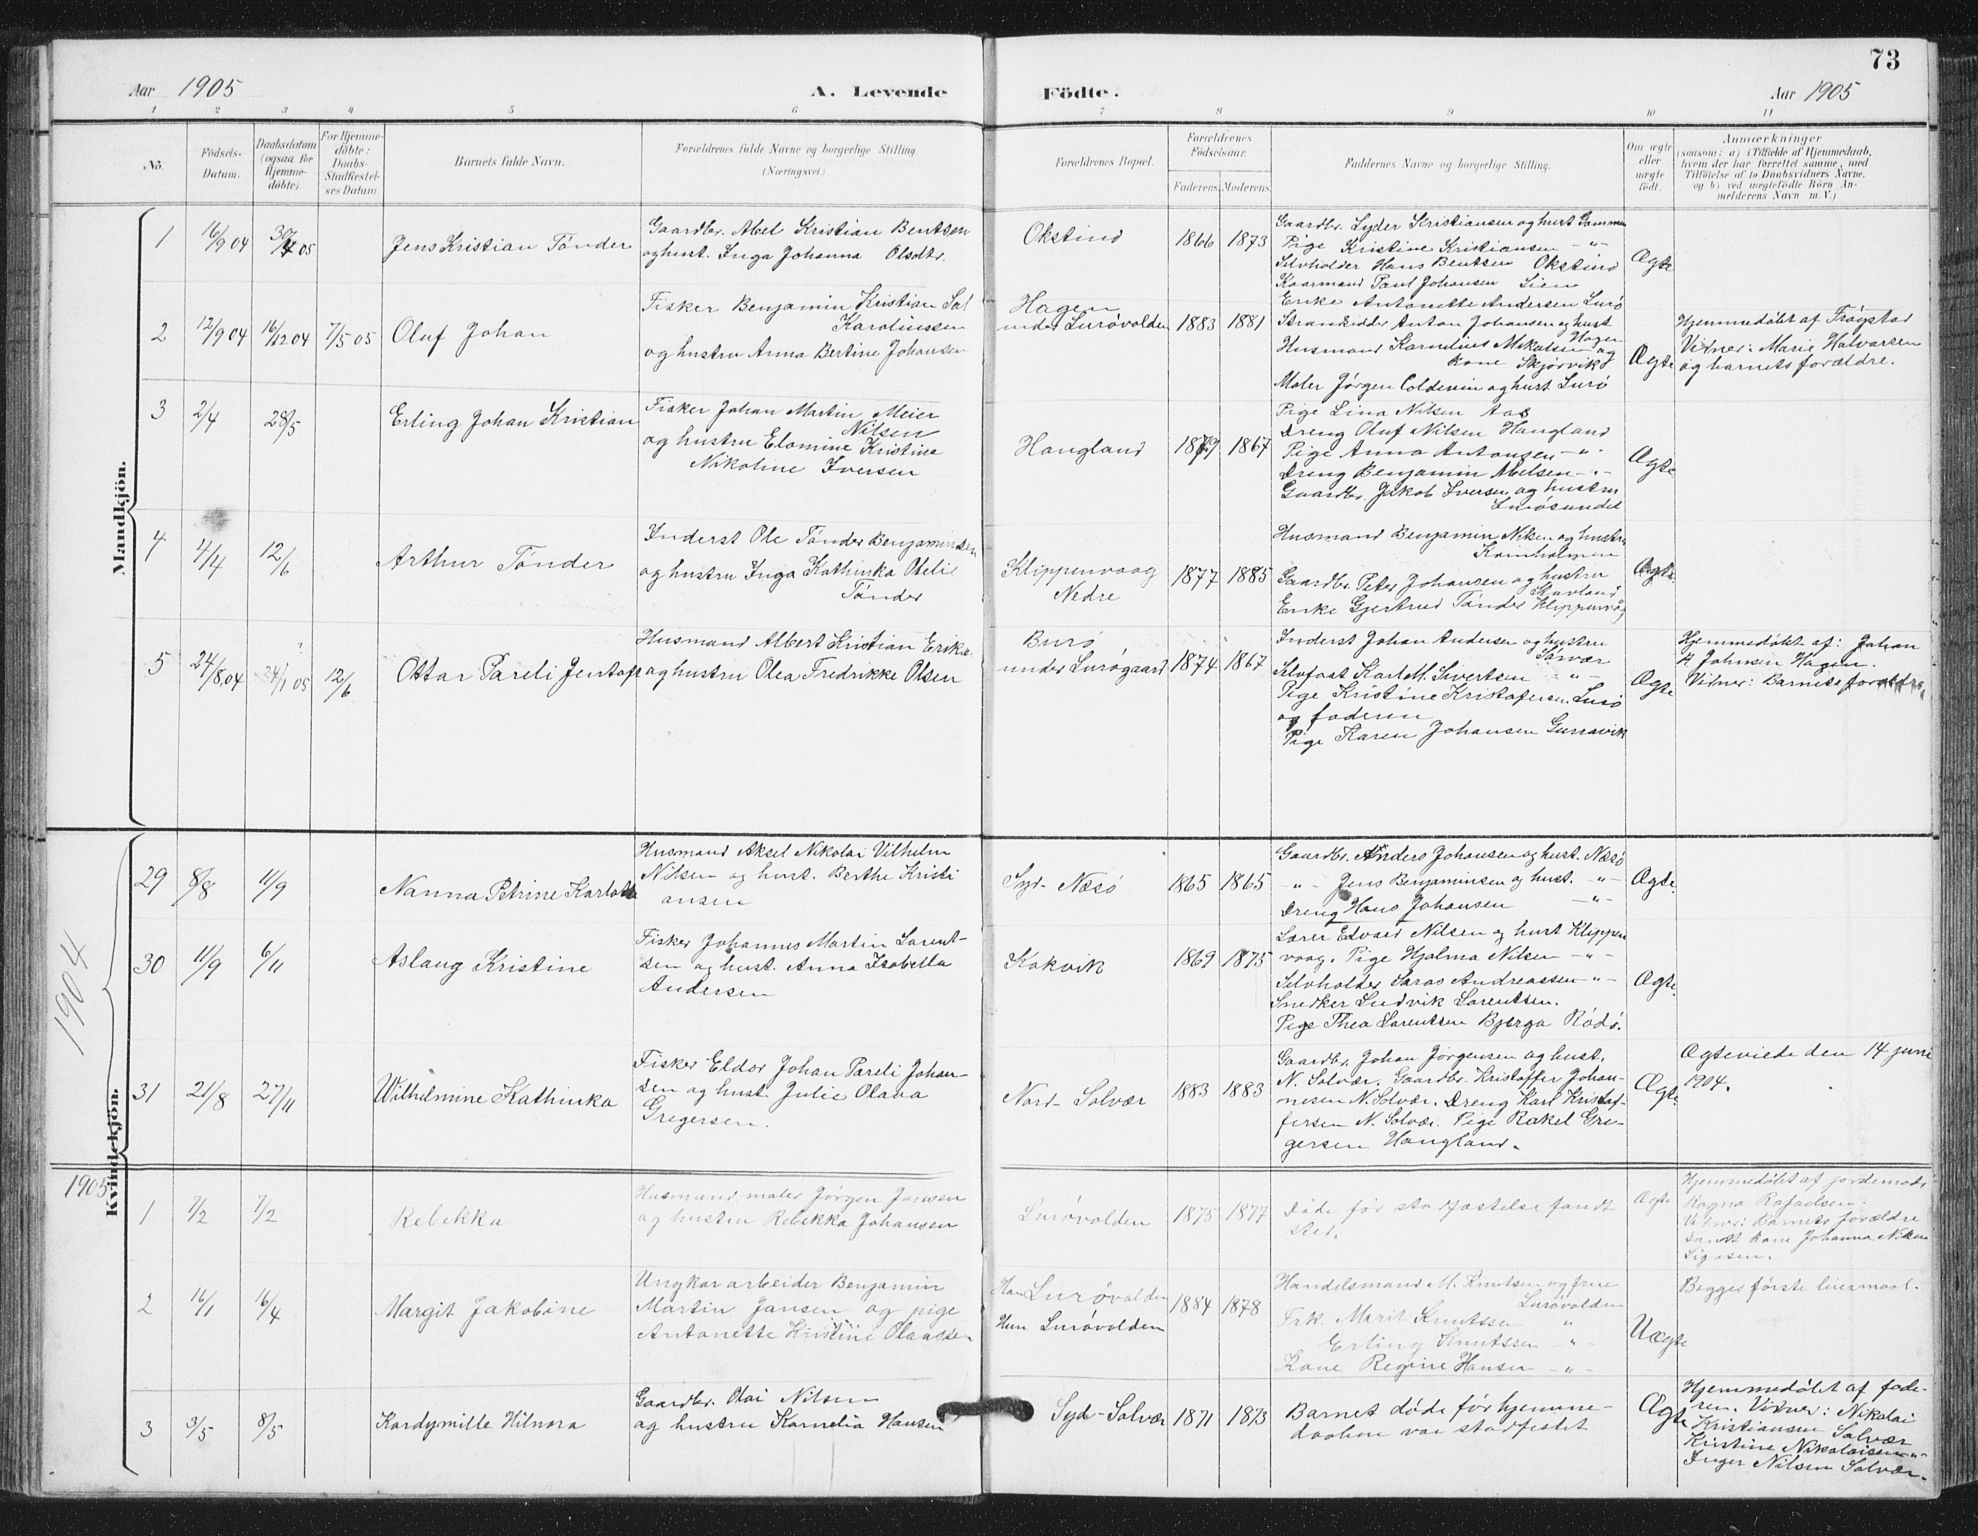 73
Aar 1905 A. Levende Födte. Aar 1905
1 2 3 4 5 6 7 8 9 10 11
No. Födsels-Datum. Daabsdatum (ogsaa for Hjemmedöbte). For Hjemmedöbte: Daabs-Stadfæstelses Datum. Barnets fulde Navn. Forældrenes fulde Navne og borgerlige Stilling (Næringsvei.) Forældrenes Bopæl. Forældrenes Födselsaar. Faderens. Moderens. Faddernes Navne og borgerlige Stilling. Om ægte eller uægte födt. Anmærkninger (saasom: a) i Tilfælde af Hjemmedaab, hvem der har forrettet samme, med Tilföielse af to Daabsvidners Navne, og b) ved uægtefödte Börn Anmelderens Navn m. V.)
Mandkjön.
1 16/9 04 30/4 05 Jens Kristian Tønder
Gaardbr. Abel Kristian Bentsen
og hust. Inga Johanna Olsdtr.
Okstind 1866 1873
Gaardbr. Lyder Kristiansen og hust Gammen
Pige Kristine Kristiansen -"-
Selvholder Hans Bentsen Okstind
Kaarmand Paul Johansen Lien
Ægte
2 12/9 04 16/12 04 7/5 05 Oluf Johan
Fisker Benjamin Kristian Sal
Karolinssen
og hustru Anna Bertine Johansen
Hagen
under Lurøvolden 1883 1881
Enke Antonette Andersen Lurø
Strandsidder Anton Johansen og hust
Hagen
Husmand Kornelius Mikalsen og
kone Skjørvik
Maler Jörgen Coldevin og hust Lurö
Ægte
Hjemmedøbt af Trögstad
Vidner: Marie Halvarsen
og barnets forældre.
3 2/4 28/5 Erling Johan Kristian
Fisker Johan Martin Meier
Nilsen
og hustru Elomine Kristine
Nikoline Iversen
Haugland 1879 1867
Pige Lina Nilsen Aas
Dreng Oluf Nilsen Haugland
Pige Anna Antonsen -"-
Dreng Benjamin Abelsen -"-
Gaardbr. Jakob Iversen og hustru
Lurösundet
Ægte
4 4/4 12/6 Arthur Tönder
Inderst Ole Tönder Benjaminsen
og hustru Inga Kathinka Otelie
Tönder
Klippenvaag
Nedre 1877 1885
Husmand Benjamin Nilsen og hustru
Kornholmen
Gaardbr. Peter Johansen og hustru
Stavland
Enke Gjertrud Tönder Klippenvåg
Ægte
5 24/8 04 24/1 05 12/6 Ottar Pareli Jentoft
Husmand Albert Kristian Eriksen
og hustru Olea Fredrikke Olsen
Burö
under Lurögaard 1874 1867
Inderst Johan Andersen og hustru
Sörvær
Selvfost Karl M. Sivertsen -"-
Pige Kristine Kristofersen Lurö
og faderen
Pige Karen Johansen Gurravik
Ægte
Hjemmedøbt af: Johan
A Johnsen Hagen.
Vidner: Barnets forældre
Kvindekjön.
1904
29 8/8 11/9 Nanna Petrine Karlotta
Husmand Aksel Nikolai Vilhelm
Nilsen og hust. Berthe Kristi
ansen
Syd- Næsö 1865 1865
Gaardbr. Anders Johansen og hust. Næsö
-"- Jens Benjaminsen og hust. -"-
Dreng Hans Johansen -"-
Ægte.
30 11/9 6/11 Aslaug Kristine
Fisker Johannes Martin Larent-
sen og hust. Anna Isabella
Andersen
Kokvik 1869 1875
Lærer Edvard Nilsen og hust Klippen
vaag. Pige Hjalma Nilsen -"-
Selvholder Saras Andreassen -"-
Snedker Ludvik Larentsen.
Pige Thea Larentsen Bjærga Rödö.
Ægte.
31 21/8 27/11 Wilhelmine Kathinka
Fisker Eldor Johan Pareli Johan-
sen og hust. Julie Olava
Gregersen.
Nord- Solvær 1883 1883
Gaardbr. Johan Jørgensen og hust.
N. Solvær. Gaardbr. Kristoffer Johan-
nesen N. Solvær. Dreng Karl Kristof-
fersen N. Solvær. Pige Rakel Gre-
gersen Haugland.
Ægte.
Ægteviede den 14 juni
1904.
1905
1 7/2 7/2 Rebekka
Husmand, maler Jörgen Jansen
og hustru Rebekka Johansen
Lurövolden 1875 1877
Döde før stadfæstelse fandt
sted.
Ægte
Hjemmedøbt af jordemoder
Ragna Rafaelsen.
Vidner: Barnets forældre
samt kone Johanna Nilsen
2 16/1 16/4 Margit Jakobine
Ungkar arbeider Benjamin
Martin Jansen og pige
Antonette Kristine Olaassen
Han Lurövolden
Hun Lurövolden 1884 1878
Handelsmand M. Knutsen og frue
Lurövolden
Frk. Marit Knutssen "
Erling Knutssen -"-
Kone Regine Hansen -"-
Uægte
Begges förste leiermaal.
3 3/5 8/5 Kordymille Hilnora
Gaardbr. Olai Nilsen
og hustru Kornelia Hansen
Syd-Solvær 1871 1873
Barnet döde før hjemme-
daaben var stadfestet
Ægte
Hjemmedöbt af fade-
ren. Vidner: Nikolai
Kristiansen Solvær
Kristine Nikolaisen -"-
Inger Nilsen Solvær.